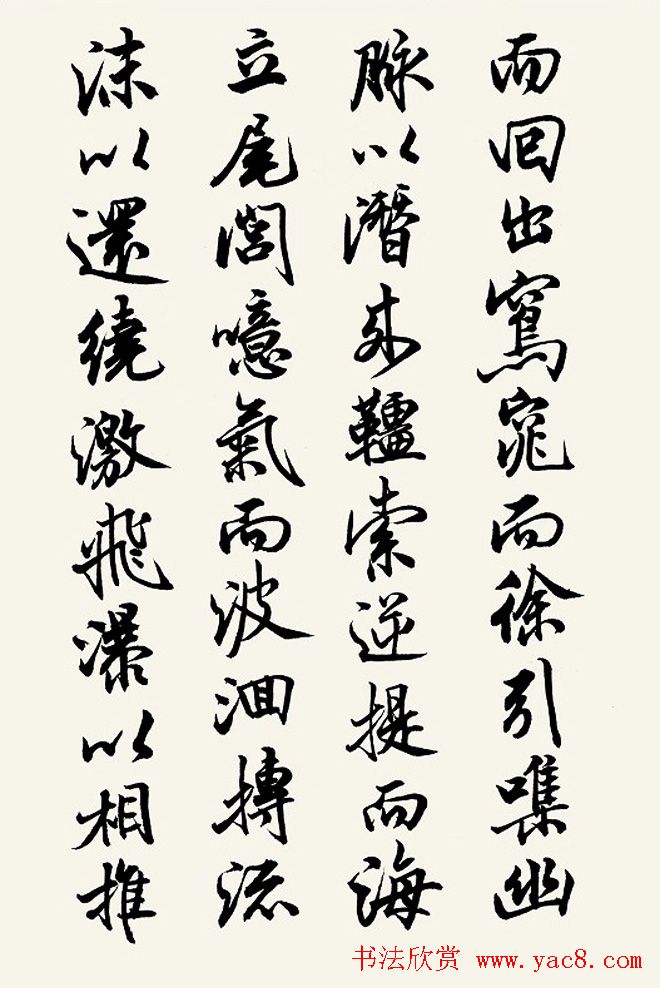 而回出窵窕而徐引噗幽
脉以潛求韁索逆提而海
立尾閭噫氣而波洄摶流
沫以還繞激飛瀑以相推
书法欣赏 www.yac8.com